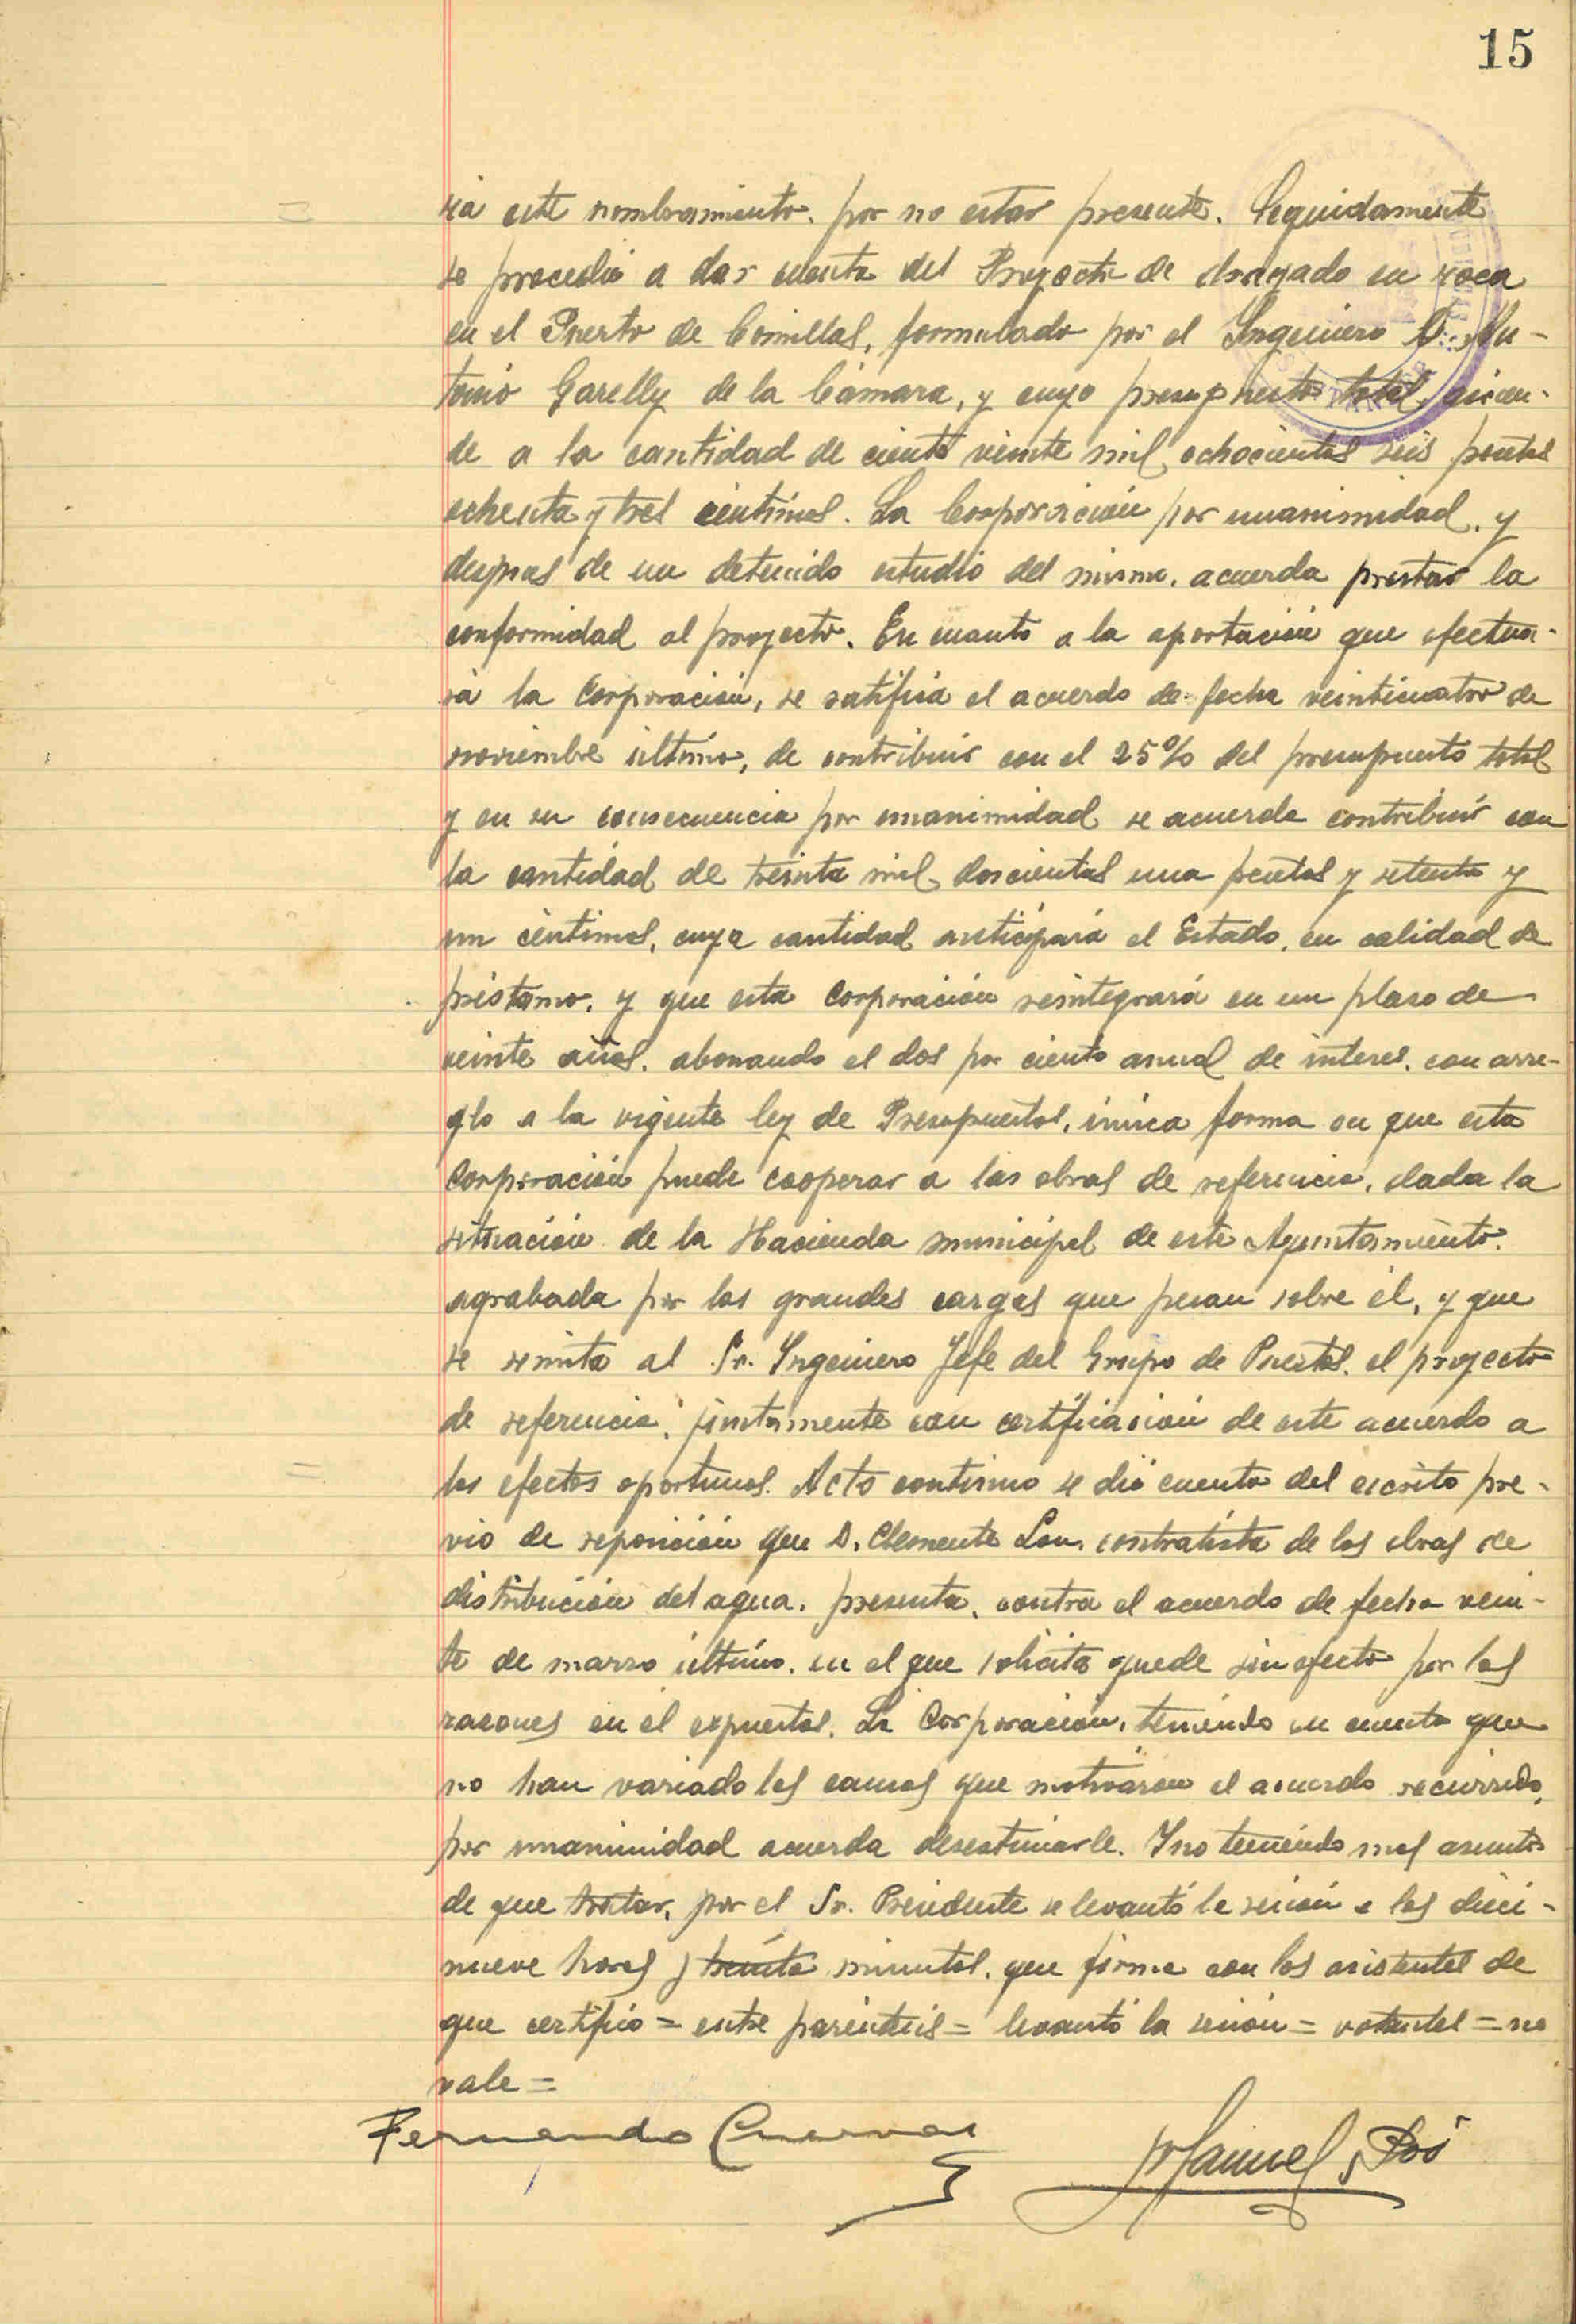 15
ria este nombramiento. por no estar presente. Seguidamente
se procedió a dar cuenta del Proyecto de dragado en roca
en el Puerto de Comillas, formulado por el Ingeniero D. An-
tonio Garelly de la Cámara, y cuyo presupuesto total ascien-
de a la cantidad de ciento veinte mil ochocientas seis pesetas
ochenta y tres céntimos. La Corporación por unanimidad, y
despues de un detenido estudio del mismo, acuerda prestar la
conformidad al proyecto. En cuanto a la aportación que efectua-
rá la Corporación, se ratifica el acuerdo de fecha veinticuatro de
noviembre último, de contribuir con el 25% del presupuesto total
y en su consecuencia por unanimidad se acuerda contribuir con
la cantidad de treinta mil doscientas una pesetas y setenta y
un céntimos, cuya cantidad anticipará el Estado, en calidad de
préstamo, y que esta Corporación reintegrará en un plazo de
veinte años, abonando el dos por ciento anual de interes, con arre-
glo a la vigente ley de Presupuestos, única forma en que esta
Corporación puede cooperar a las obras de referencia, dada la
situación de la Hacienda municipal de este Ayuntamiento.
agrabada por las grandes cargas que pesan sobre él, y que
se remita al Sr. Ingeniero Jefe del Grupo de Puertos, el proyecto
de referencia, juntamente con certificación de este acuerdo a
los efectos oportunos. Acto continuo se dió cuenta del escrito pre-
vio de reposición que D. Clemente Lou, contratista de las obras de
distribución del agua, presenta, contra el acuerdo de fecha vein-
te de marzo último, en el que solicita quede sin efecto por las
razones en él expuestas. La Corporación, teniendo en cuenta que
no han variado las causas que motivaron el acuerdo recurrido,
por unanimidad acuerda desestimarle. Y no teniendo mas asuntos
de que tratar, por el Sr. Presidente se levantó la sesión a las dieci-
nueve horas y treinta minutos, que firma con los asistentes de
que certifico = entre paréntesis = levantó la sesión = votantes = no
vale =
Fernando Cuevas
Manuel Pos